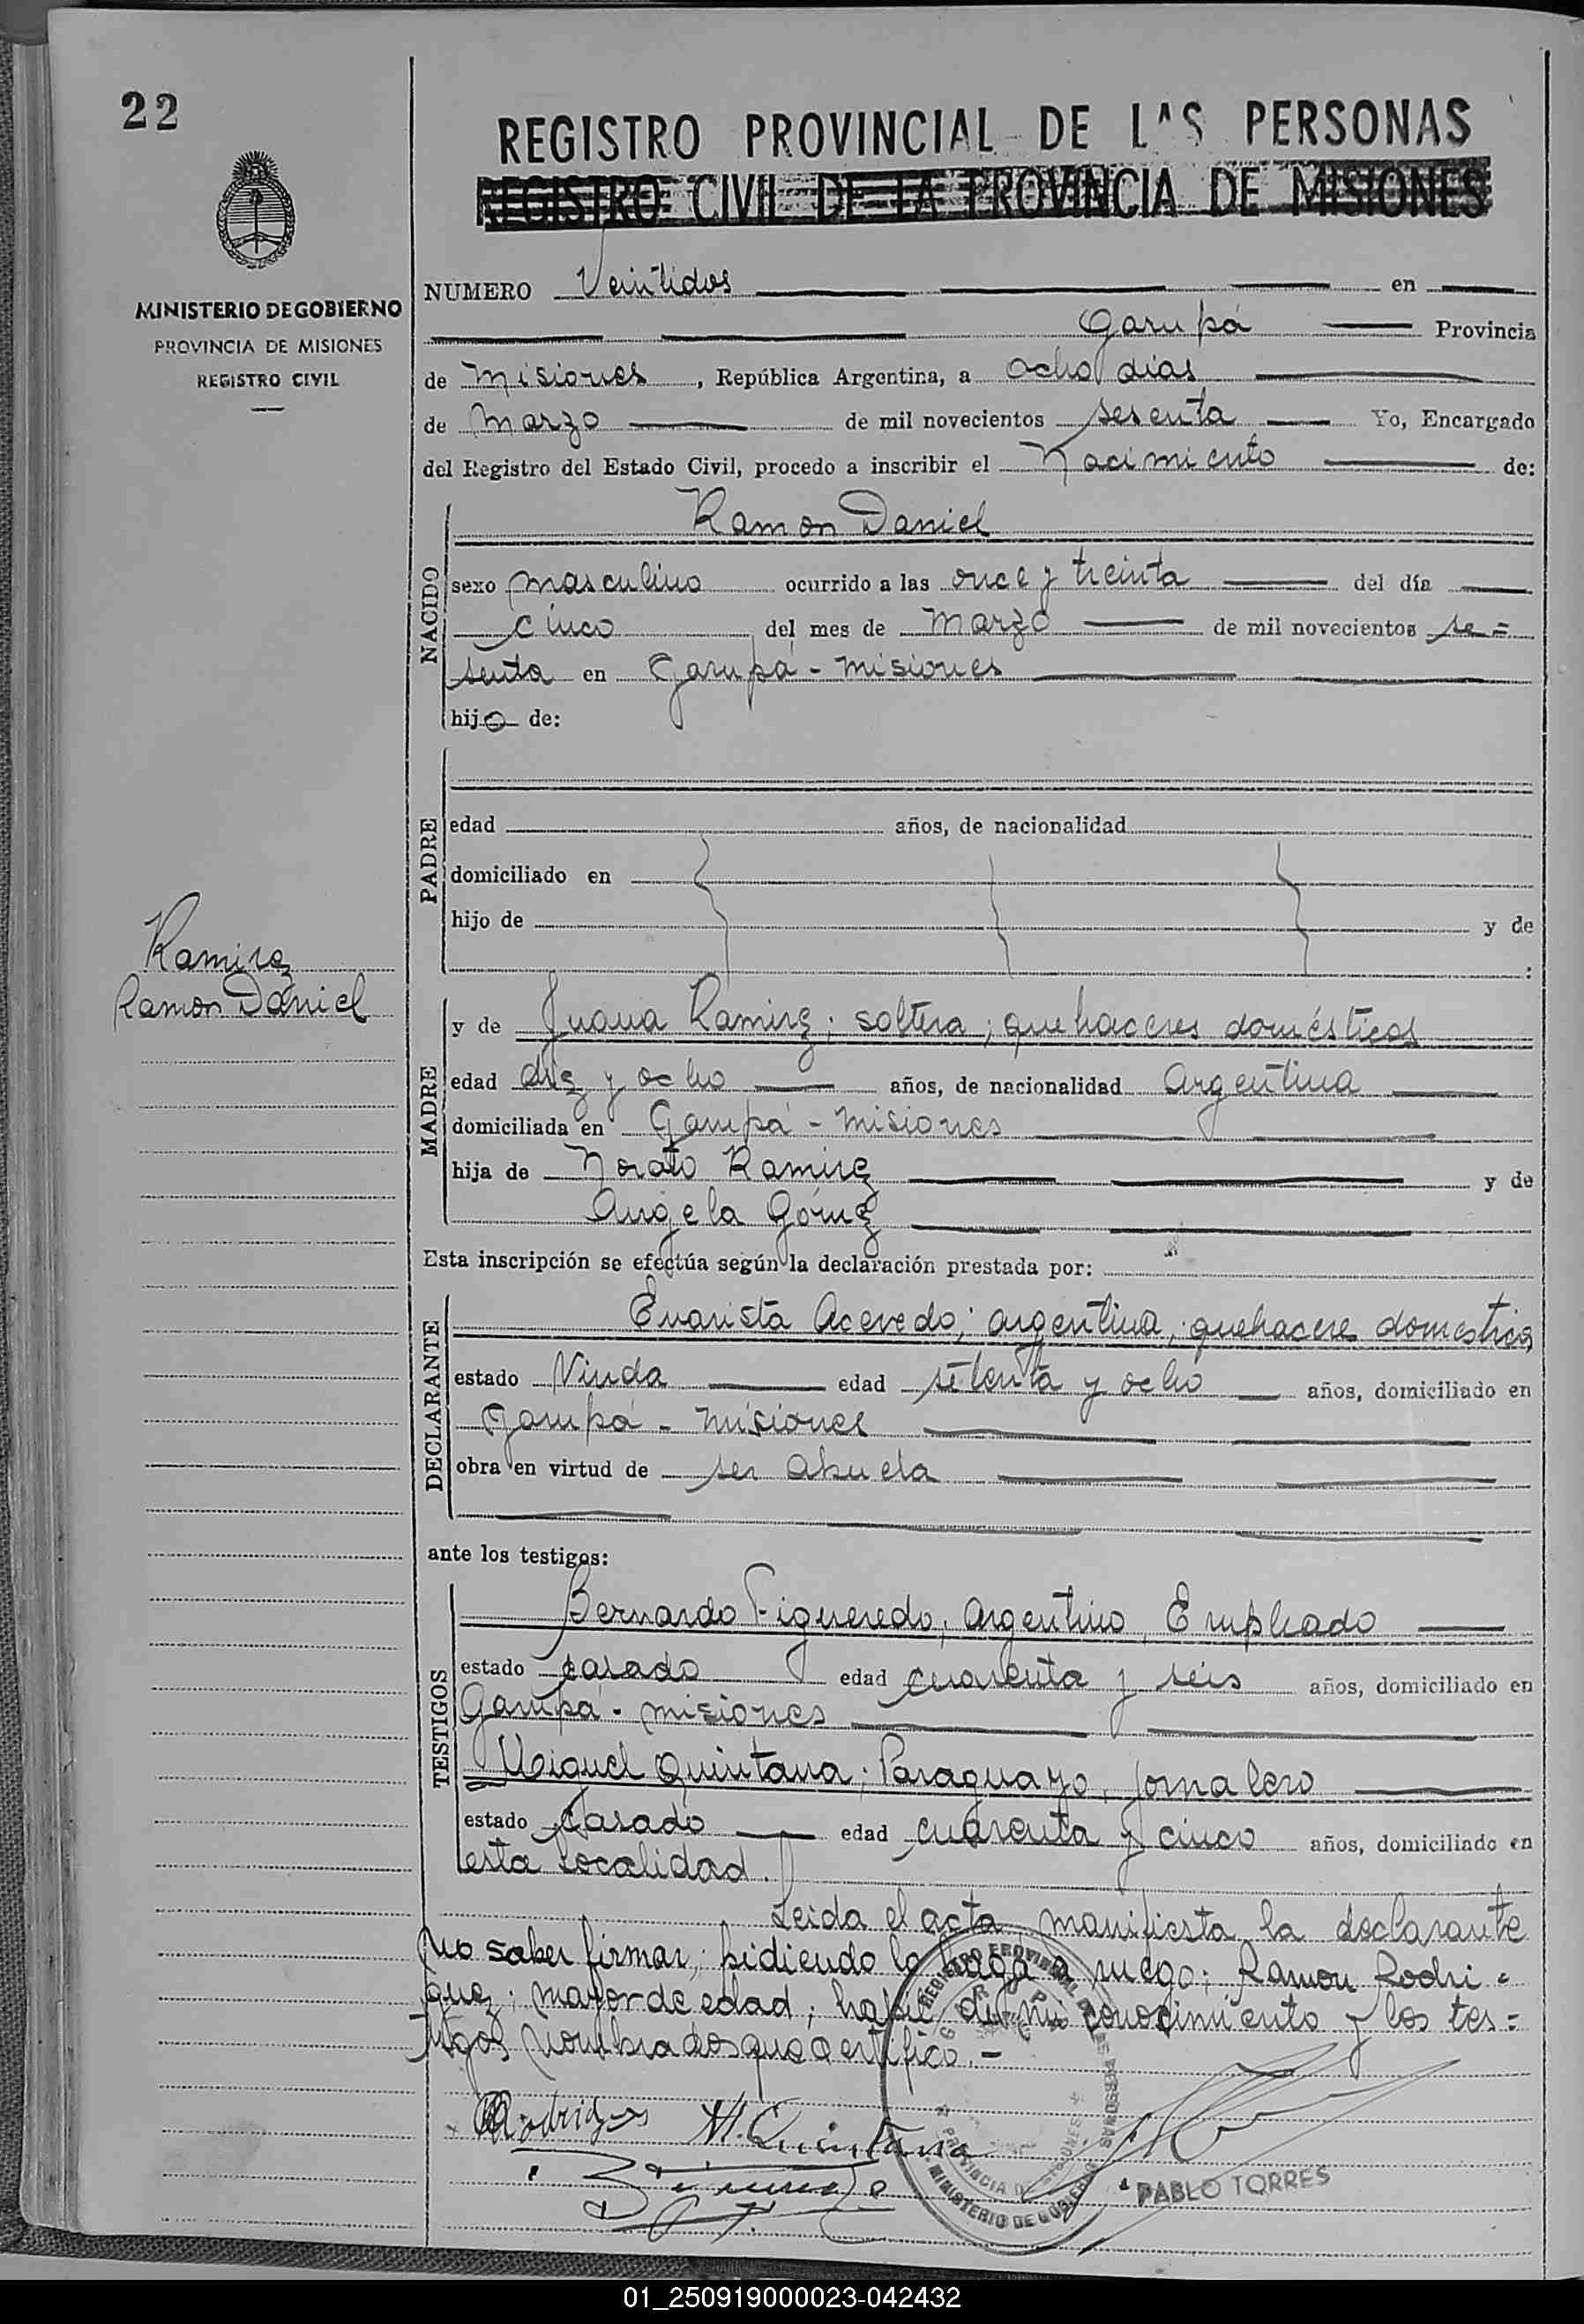 22
REGISTRO PROVINCIAL DE LAS PERSONAS
REGISTRO CIVIL DE LA PROVINCIA DE MISIONES
MINISTERIO DE GOBIERNO
PROVINCIA DE MISIONES
REGISTRO CIVIL
NUMERO Veintidos en
Garupá Provincia
de Misiones, República Argentina, a ocho dias
de Marzo de mil novecientos sesenta Yo, Encargado
del Registro del Estado Civil, procedo a inscribir el Nacimiento de:
NACIDO
Ramon Daniel
sexo masculino ocurrido a las once y treinta del día
cinco del mes de Marzo de mil novecientos se=
senta en Garupá - Misiones
hijo de:
PADRE
edad años, de nacionalidad
domiciliado en
hijo de y de
:
Ramirez
Ramon Daniel
MADRE
y de Juana Ramirez; soltera; quehaceres domésticos
edad diez y ocho años, de nacionalidad Argentina
domiciliada en Garupá - Misiones
hija de Norato Ramirez y de
Angela Gómez
Esta inscripción se efectúa según la declaración prestada por:
DECLARANTE
Evarista Acevedo; argentina; quehacere domestico
estado Viuda edad setenta y ocho años, domiciliado en
Garupá - Misiones
obra en virtud de ser abuela
ante los testigos:
TESTIGOS
Bernardo Figueredo; argentino, Empleado
estado casado edad cuarenta y seis años, domiciliado en
Garupá - Misiones
Miguel Quintana; Paraguayo, jornalero
estado casado edad cuarenta y cinco años, domiciliado en
esta localidad.
Leida el acta manifiesta la declarante
no saber firmar; pidiendo lo haga a ruego; Ramon Rodri=
guez; mayor de edad; habil de mi conocimiento y los tes=
tigos nombrados que certifico.-
Rodriguez M. Quintana
REGISTRO PROVINCIAL DE LAS PERSONAS
GARUPA
PROVINCIA DE MISIONES
MINISTERIO DE GOBIERNO
PABLO TORRES
01_250919000023-042432